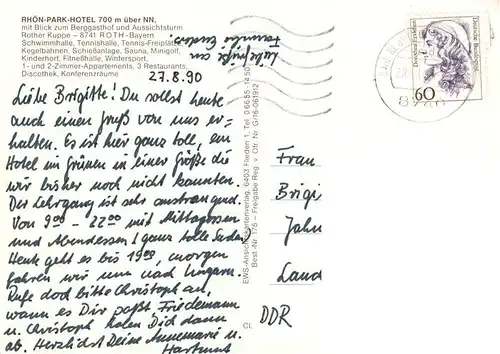 RHÖN-PARK-HOTEL 700 m über NN,
mit Blick zum Berggasthof und Aussichtsturm
Rother Kuppe - 8741 ROTH-Bayern
Schwimmhalle, Tennishalle, Tennis-Freiplätze
Kegelbahnen, Schießanlage, Sauna, Minigolf,
Kinderhort, Fitneßhalle, Wintersport,
1- und 2-Zimmer-Appartements, 3 Restaurants,
Discothek, Konferenzräume
27.8.90
Liebe Brigitte! Du sollst heute
auch einen Gruß von uns er-
halten. Es ist hier ganz toll, ein
Hotel im Grünen in einer Größe die
wir bisher noch nicht kannten.
Der Lehrgang ist sehr anstrengend.
Von 9⁰⁰ - 22⁰⁰ mit Mittagessen
und Abendessen (ganz tolle Sachen)
Heute geht es bis 19⁰⁰, morgen
fahren wir nach Ungarn.
Rufe doch bitte Christoph an,
wann es Dir paßt. Friedemann
u. Christoph holen Dich dann
ab. Herzlichst Deine Annemarie u.
Hartmut
Grüße an
Familie
EWS-Ansichtskartenverlag, 6403 Flieden 1, Tel. 0 66 55-14 50
Best.-Nr. 175 - Freigabe Reg. v. Ofr. Nr. G/16-061912
CL
Frau
Brigi
Jahn
Land
DDR
Deutsche Bundespost
60